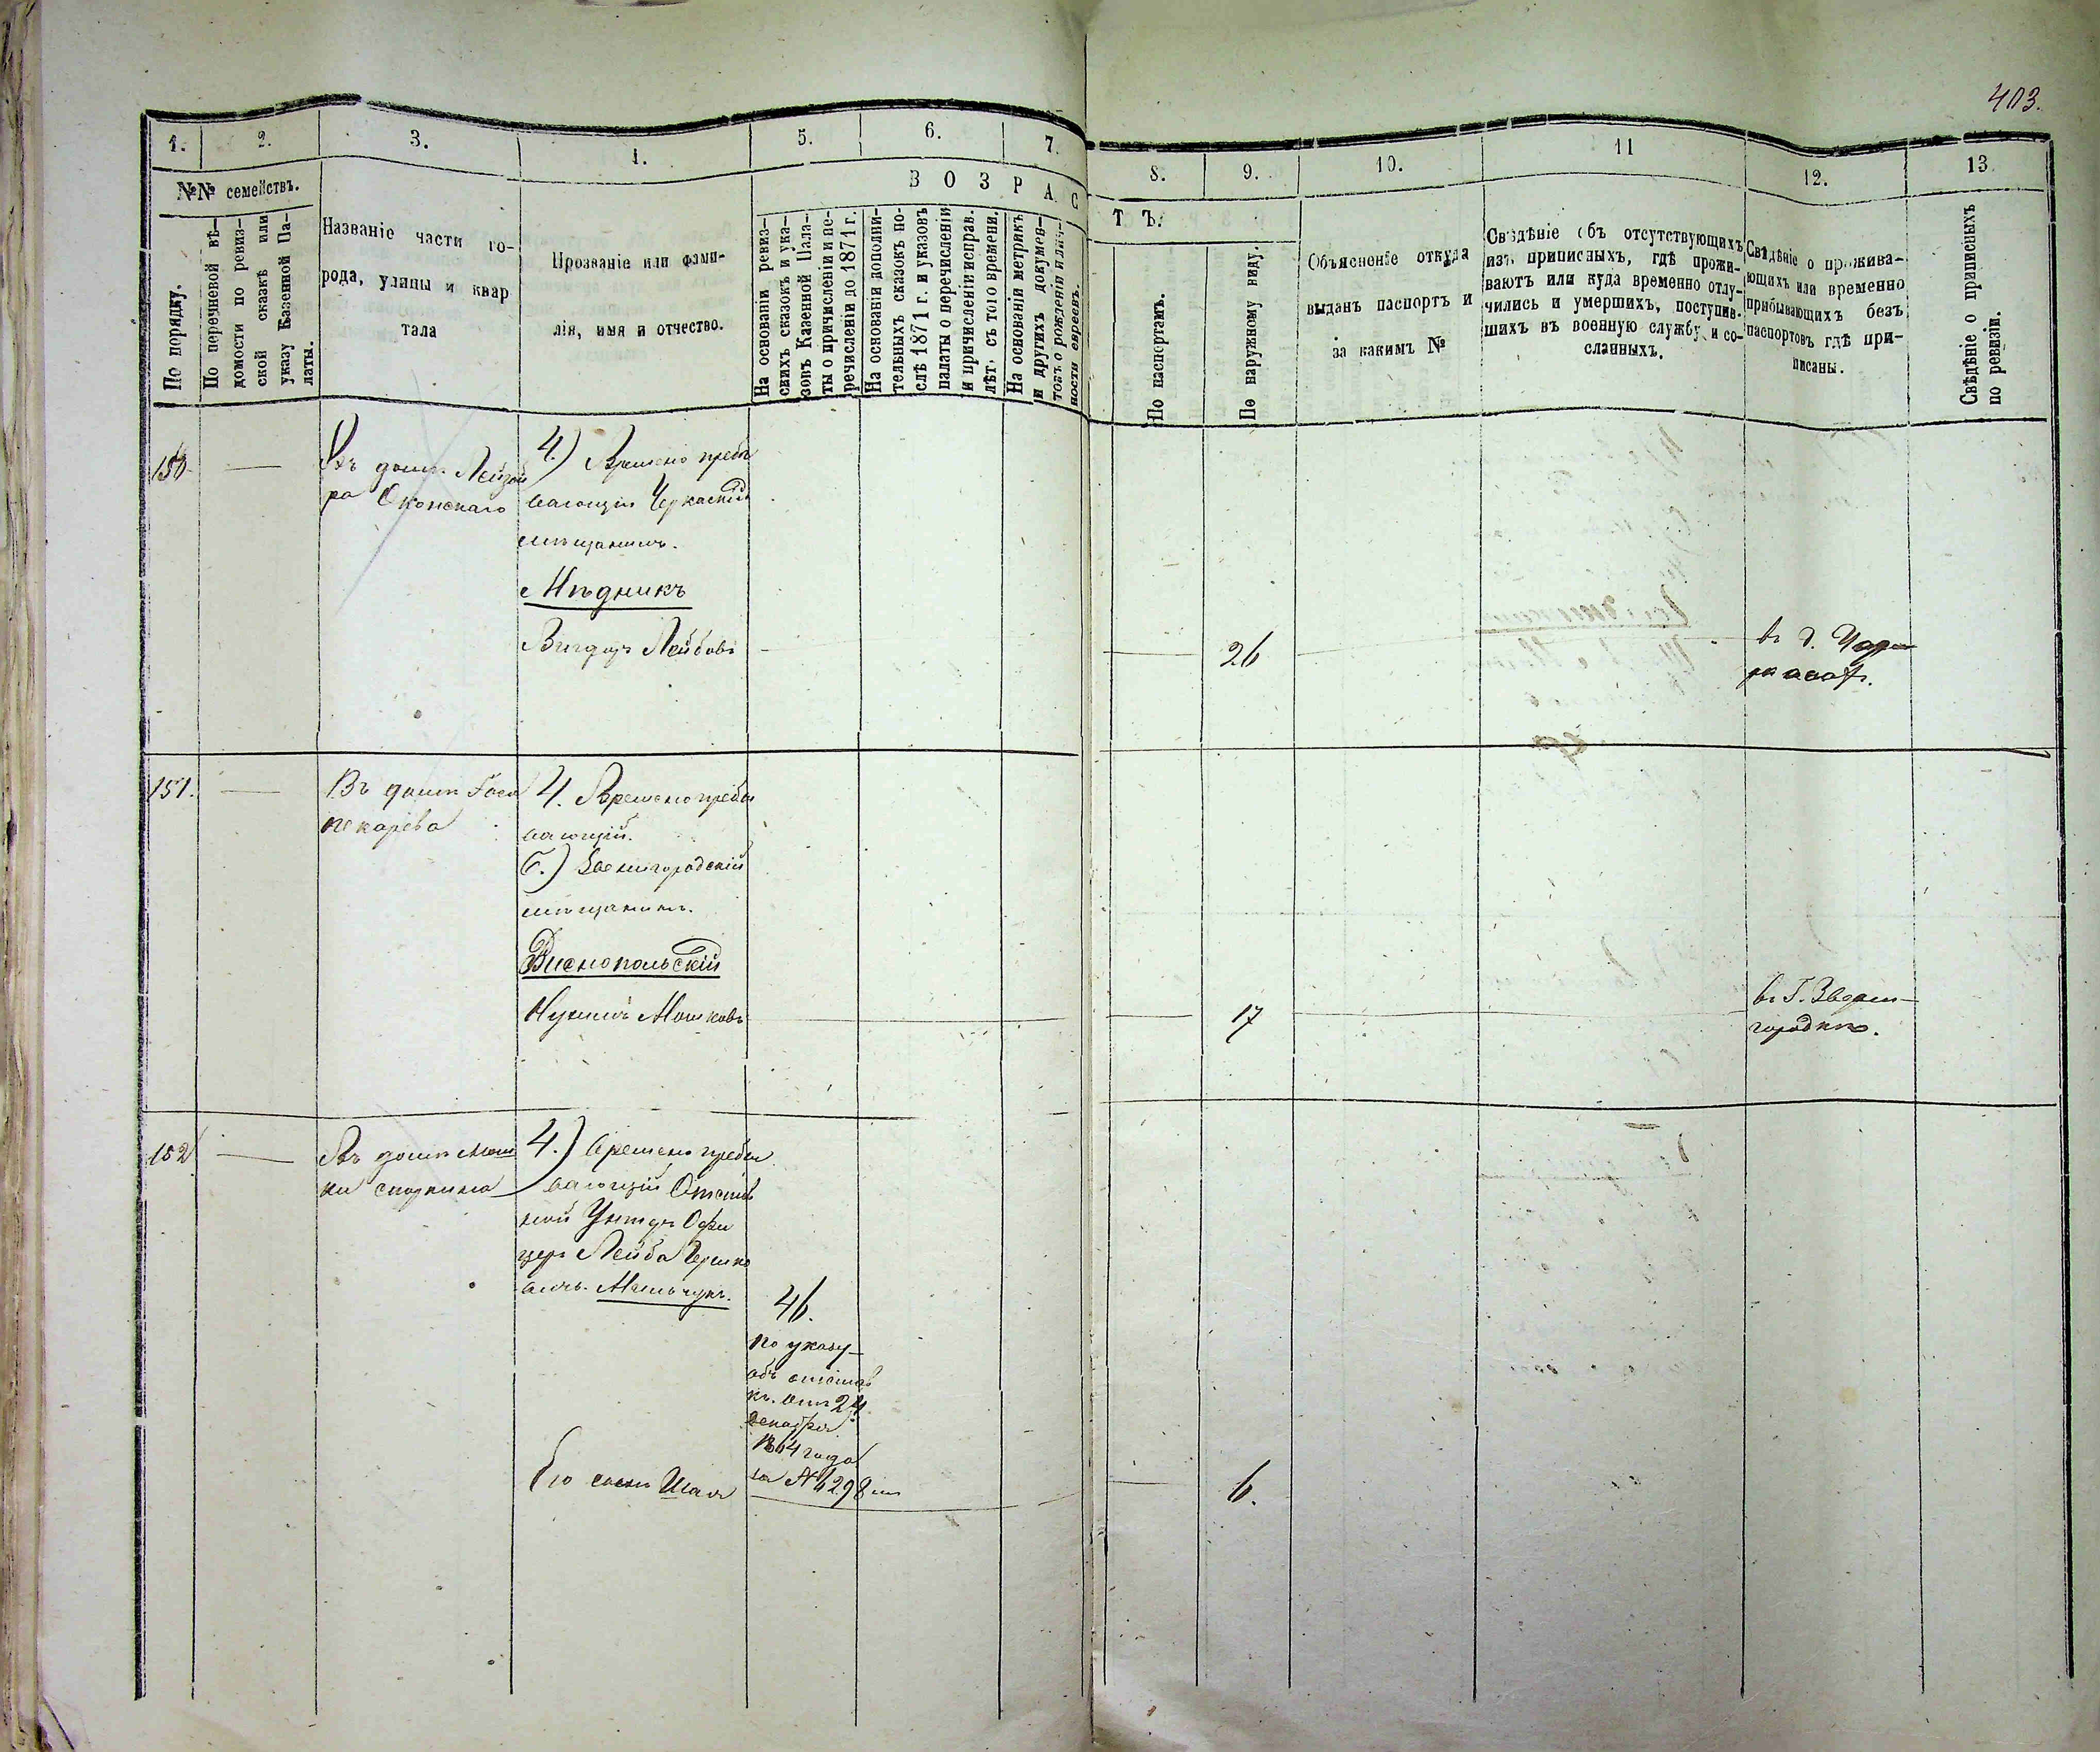 403.
1.
2.
3.
4.
5.
6.
7.
8.
9.
10.
11
12.
13.
№№ семействъ.
По порядку.
По перечневой вѣ-
домости по ревиз-
ской сказкѣ или
указу Казенной Па-
латы.
Названіе части го-
рода, улицы и квар
тала
Прозваніе или фами-
лія, имя и отчество.
ВОЗРАСТЪ.
На основаніи ревиз-
скихъ сказокъ и ука-
зовъ Казенной Пала-
ты о причисленіи и пе-
речисленіи до 1871 г.
На основаніи дополни-
тельныхъ сказокъ по-
слѣ 1871 г. и указовъ
палаты о перечисленіи
и причисленіи исправ.
лѣт. съ того времени.
На основаніи метрикъ
и другихъ докумен-
товъ о рожденіи и лич-
ности евреевъ.
По паспортамъ.
По наружному виду.
Объясненіе откуда
выданъ паспортъ и
за какимъ №
Свѣдѣніе объ отсутствующихъ
изъ приписныхъ, гдѣ прожи-
ваютъ или куда временно отлу-
чились и умершихъ, поступив-
шихъ въ военную службу и со-
сланныхъ.
Свѣдѣніе о прожива-
ющихъ или временно
прибывающихъ безъ
паспортовъ гдѣ при-
писаны.
Свѣдѣніе о приписныхъ
по ревизіи.
150
Въ домѣ Лейзо
ра Сконскаго
4.) Времено пребы
вающій Черкаскій
мѣщанинъ.
Мѣдникъ
Вигдоръ Лейбовъ
26
въ г.
151.
Въ домѣ
Пекарева
4. Времено пребы
вающій.
Б.) Звенигородскій
мѣщанинъ.
Виснопольскій
Нухимъ Мошковъ
17
въ г.
городкѣ.
152
Въ домѣ Мош
ки
4.) Времено пребы
вающій Отстав
ной Унтеръ Офи
церъ Лейба Гершко
вичъ.
46.
по указу
объ отстав
кѣ. отъ 24
декабря
1864 года
за №6298
Его сынъ
6.